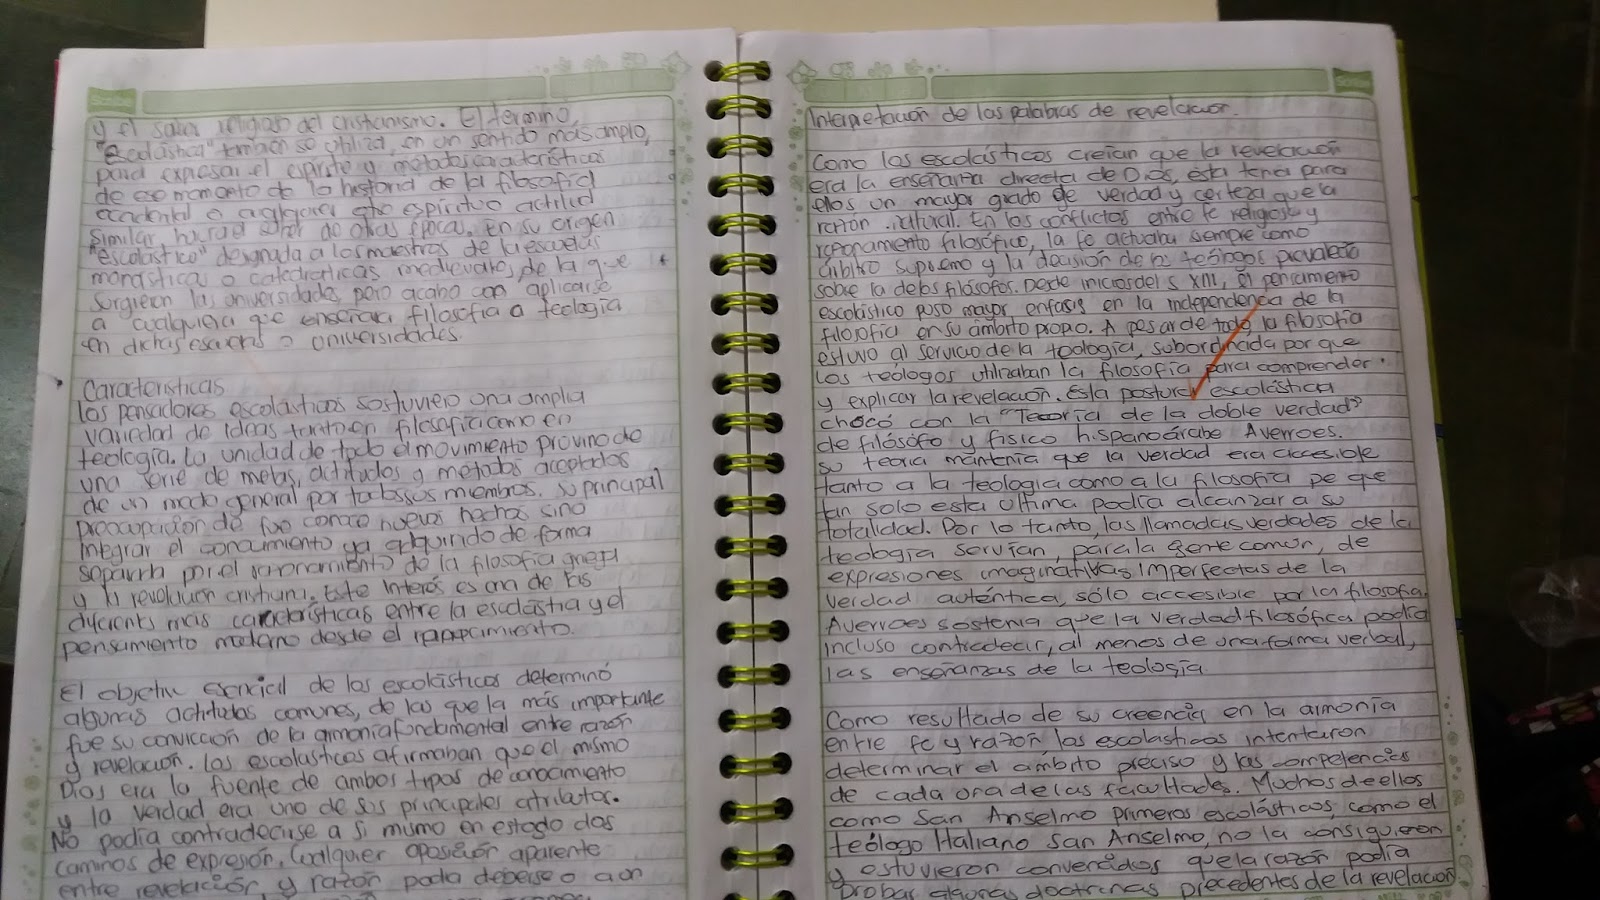 Scribe
y el saber religioso del cristianismo. El termino,
"escolástica" tambien se utiliza, en un sentido mas amplio,
para expresar el espiritu y metodos caracteristicos
de ese momento de la historia de la filosofia
occidental o cualquier otro espiritu o actitud
similar hacia el saber de otras epoca. En su origen
"escolastico" designada a los maestros de la escuelas
monástica o catedráticas medievales, de la que
surgieron las universidades, pero acabo con aplicarse
a cualquiera que enseñara filosofia o teologia
en dichas escuelas o universidades.
Caracteristicas
los pensadores escolásticos sostuviero una amplia
variedad de ideas tanto en filosofia como en
teología. La unidad de todo el movimiento provino de
una serie de metas, actitudes y metodos aceptados
de un modo general por todos sus miembros. su principal
preocupacion de fue conoce nuevos hechos sino
integrar el conocimiento ya adquirido de forma
separra por el razonamiento de la filosofia griega
y la revelacion cristiana. Este interes es una de las
diferents mas caracteristicas entre la escolástia y el
pensamiento moderno desde el
El objetiv esencial de los escolásticos determinó
algunas actitudes comunes, de las que la más importante
fue su convicción de la armonia fondamental entre razón
y revelacion. Los escolasticos afirmaban que el mismo
Dios era la fuente de ambos tipos de conocimiento
y la verdad era uno de sus principales atributos.
No podia contradecirse a si mismo en estado dos
caminos de expresión. Cualquier oposición aparente
entre revelación y razón podia deberse o a un
Scribe
Interpretación de las palabras de revelación.
Como los escolásticos creían que la revelación
era la enseñanza directa de Dios, ésta tenia para
ellos un mayor grado de verdad y certeza que la
razón natural. En los conflictos entre fe religiosa y
razonamiento filosófico, la fe actuaba siempre como
árbitro supremo y la decision de los teólogos prevalecia
sobre la de los filósofos. Desde inicios del s XIII, el pensamiento
escolástico puso mayor enfasis en la independencia de la
filosofia en su ámbito propio. A pesar de todo, la filosofia
estuvo al servicio de la teología, subordinada por que
los teólogos utilizaban la filosofía para comprender
y explicar la revelación. Esta postura escolástica
chocó con la "Teoría de la doble verdad"
de filósofo y fisico hispanoárabe Averroes.
su teoria mantenia que la verdad era accesible
tanto a la teologia como a la filosofia pe que
tan solo esta ultima podía alcanzar a su
totalidad. Por lo tanto, las llamadas verdades de la
teologia servian, para la gente común, de
expresiones imaginativas imperfectas de la
verdad auténtica, sólo accesible por la filosofia.
Averroes sostenia que la verdad filosófica podía
incluso contradecir, al menos de una forma verbal,
las enseñanzas de la teología
Como resultado de su creencia en la armonía
entre fe y razón los escolasticos intentaron
determinar el ámbito preciso y las competencias
de cada una de las facultades. Muchos de ellos
como San Anselmo primeros escolásticos, como el
teólogo Italiano San Anselmo, no la consiguieron
y estuvieron convencidos que la razón podía
probar algunas doctrinas precedentes de la revelación